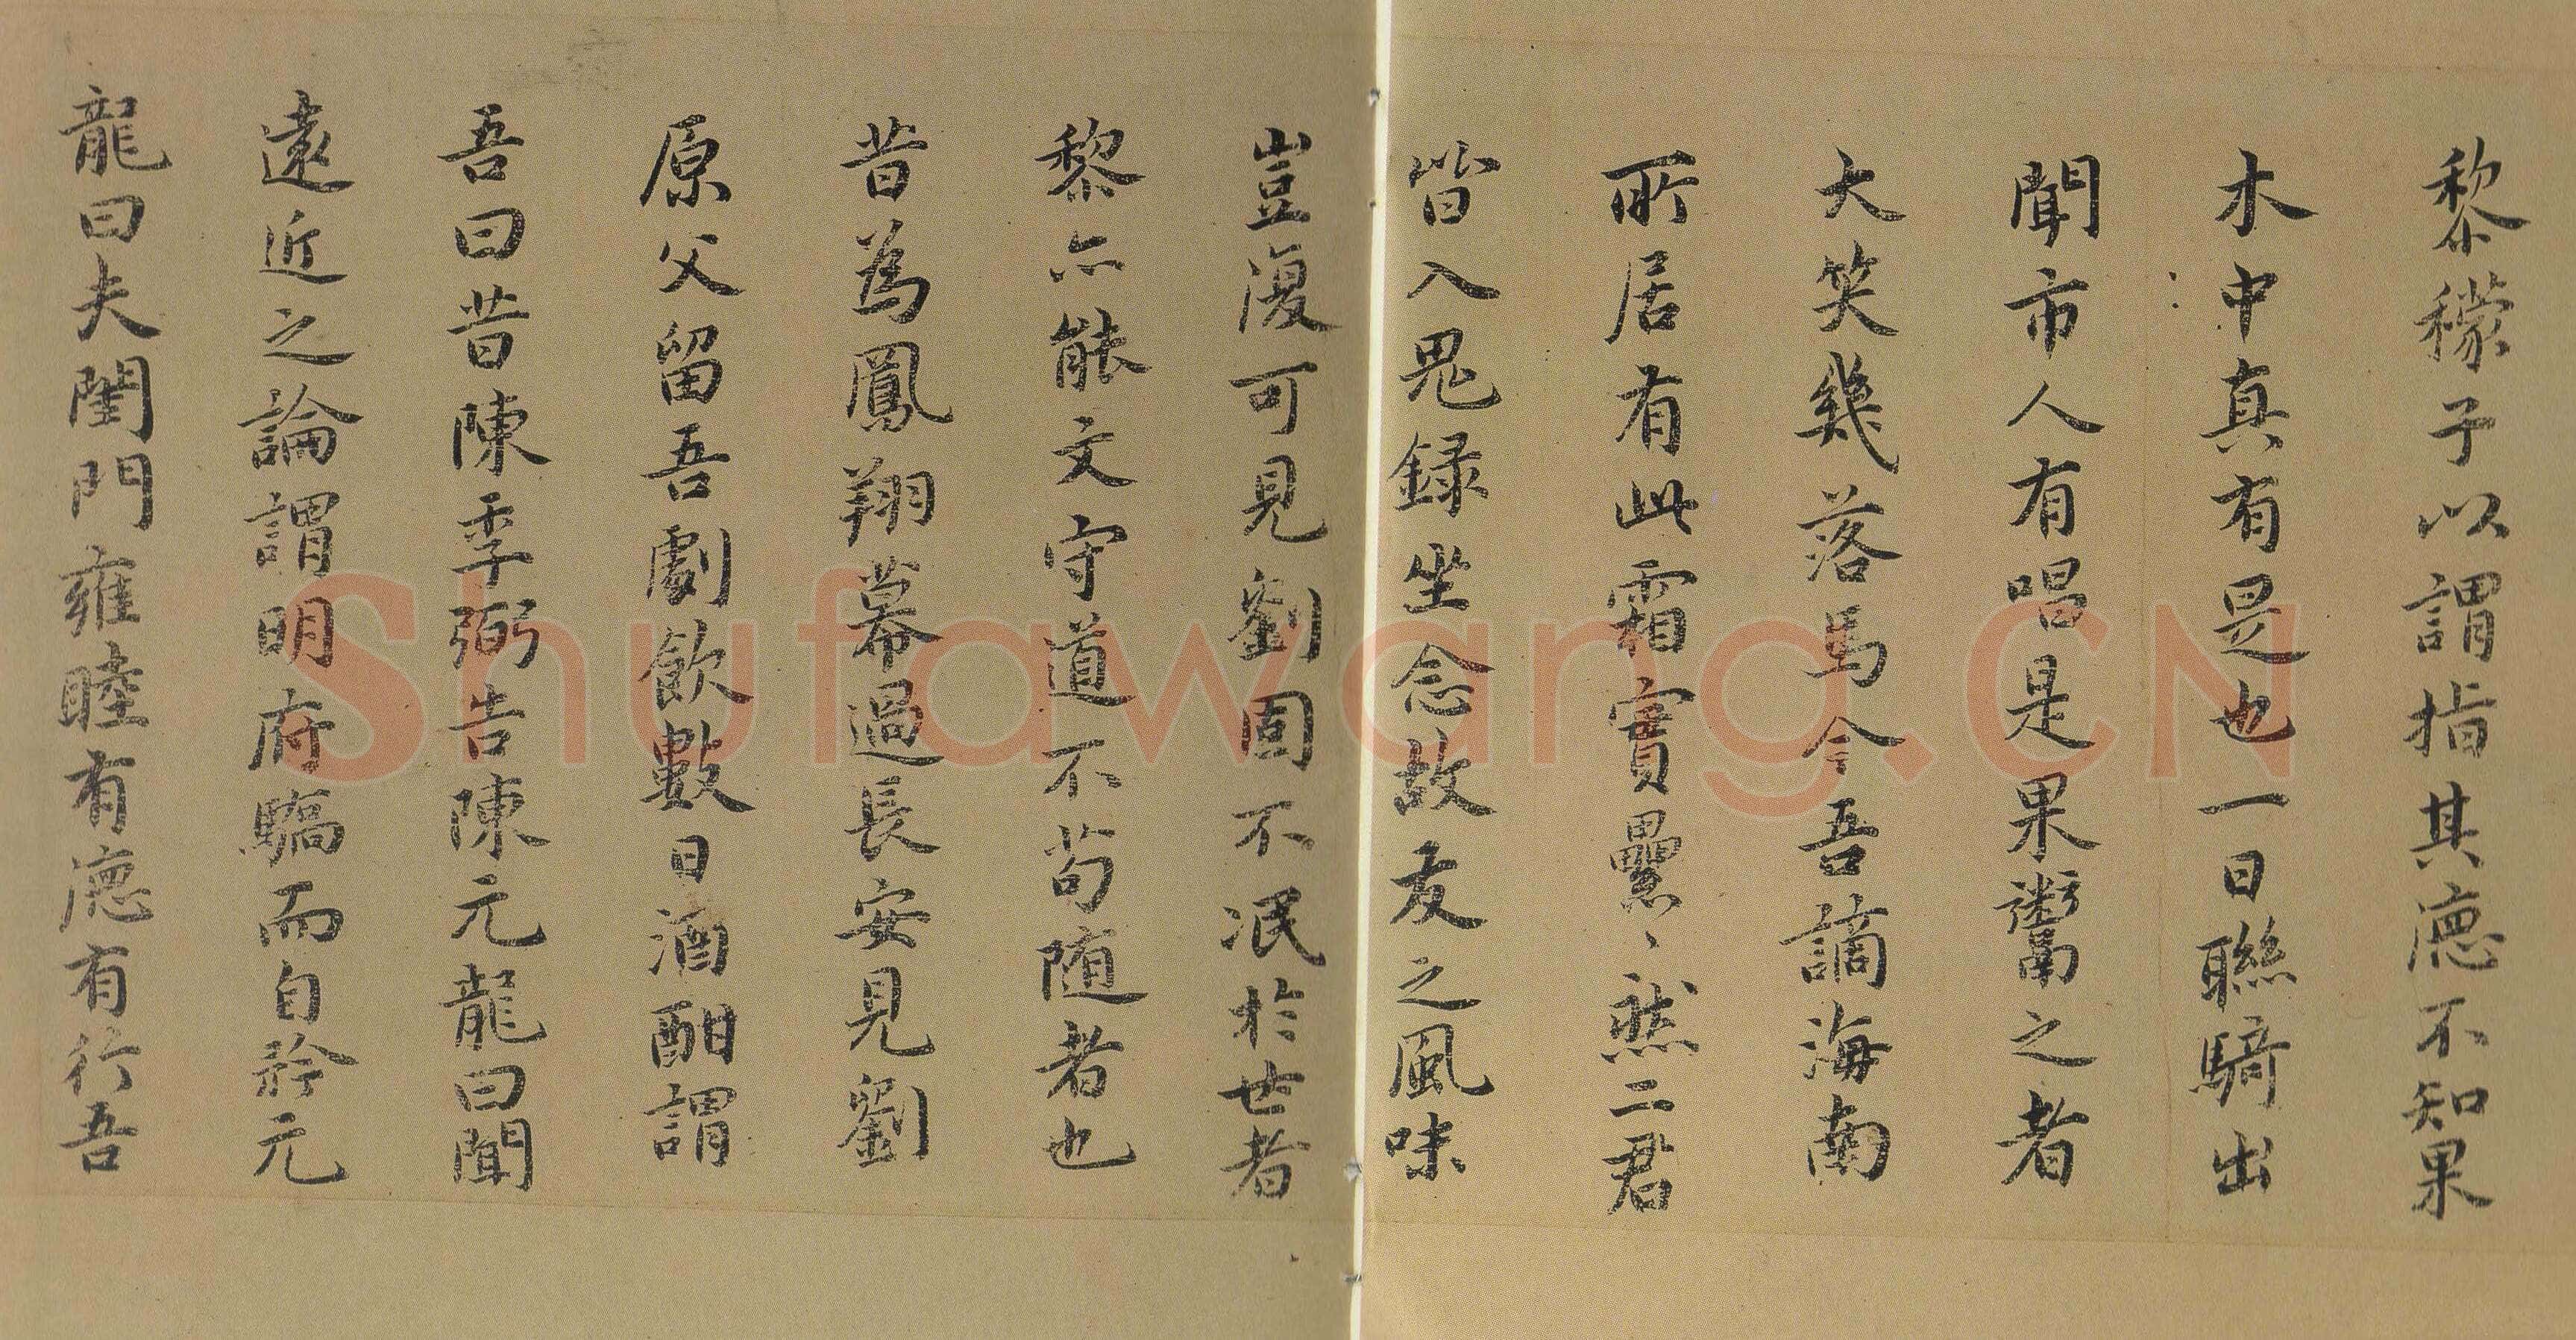 黎檬子以謂指其德不知果
木中真有是也一日聯騎出
聞市人有唱是果鬻之者
大笑幾落馬今吾謫海南
所居有此霜實纍、然二君
皆入鬼録坐念故友之風味
豈復可見劉固不泯於世者
黎亦能文守道不苟随者也
昔為鳳翔幕過長安見劉
原父留吾劇飲數日酒酣謂
吾曰昔陳季弼告陳元龍曰聞
遠近之論謂明府驕而自矜元
龍曰夫閨門雍睦有德有行吾
Shufawang.CN